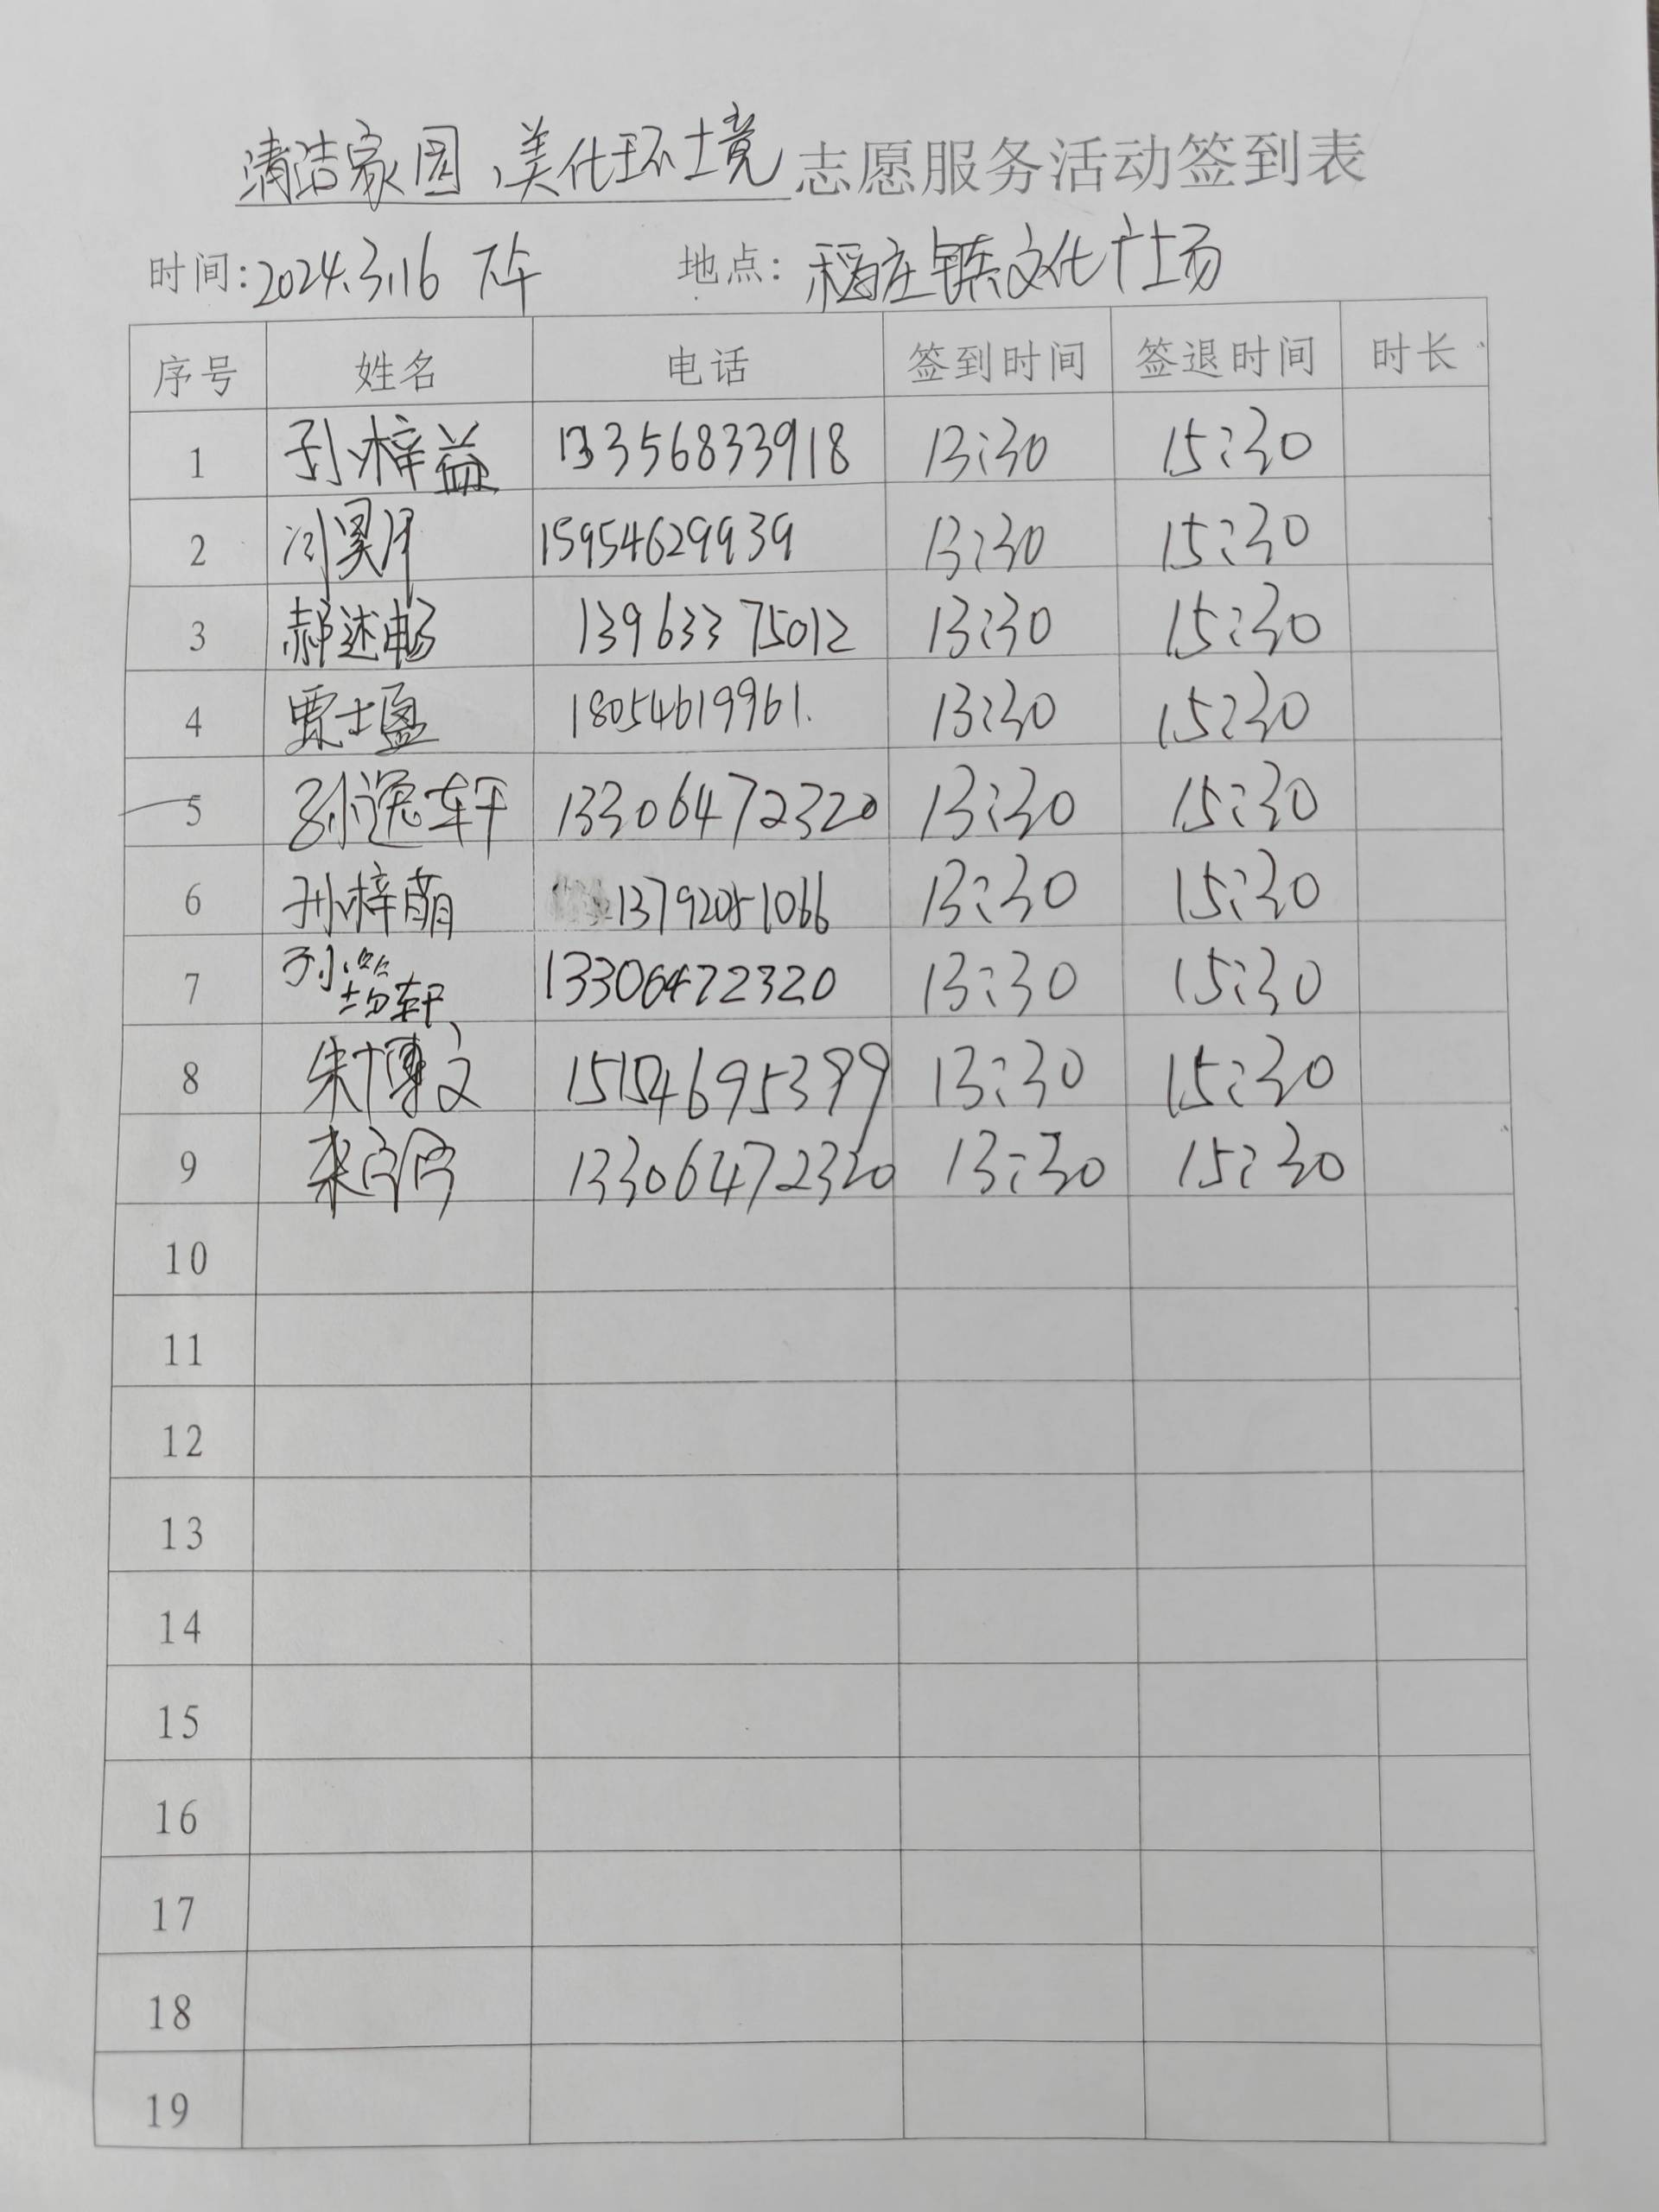 清洁家园、美化环境志愿服务活动签到表
时间:2024.3.16 下午 地点:稻庄镇文化广场
序号 姓名 电话 签到时间 签退时间 时长
1 孙梓益 13356833918 13:30 15:30
2 15954629939 13:30 15:30
3 郝述畅 13963375012 13:30 15:30
4 贾士盈 18054619961. 13:30 15:30
5 孙逸轩 13306472320 13:30 15:30
6 孙梓萌 13792081066 13:30 15:30
7 孙 轩 13306472320 13:30 15:30
8 朱博文 15154695399 13:30 15:30
9 13306472320 13:30 15:30
10
11
12
13
14
15
16
17
18
19